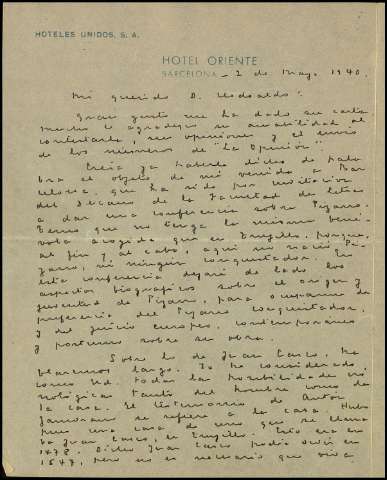 HOTELES UNIDOS, S. A.
HOTEL ORIENTE
BARCELONA 2 de Mayo 1940.
Mi querido D. Clodoaldo:
Gran gusto me ha dado su carta
mucho le agradezco su amabilidad al
contestarla, sus opiniones y el envio
de los números de "La Opinión".
Creia ya haberle dicho de pala-
bra el objeto de mi venida a Bar-
celona, que ha sido por invitación
del Decano de la Facultad de Letras
a dar una conferencia sobre Pizarro.
Temo que no tenga la misma bené-
vola acogida que en Trujillo, porque,
al fin y al cabo, aqui no nació Pi-
zarro, ni ningún conquistador. En
esta conferencia dejaré de lado los
aspectos biográficos sobre el origen y
juventud de Pizarro, para ocuparme de
preferencia del Pizarro conquistador,
y del juicio europeo, contemporáneo
y póstumo sobre su obra.
Sobre lo de Juan Casco, ha-
blaremos largo. Yo he considerado,
como Ud. todas las posibilidades cro-
nológicas tanto del hombre como de
la casa. El testimonio de Antón
Zamorano se refiere a la casa. Hubo
pues una casa de uno que se llama-
ba Juan Casco, en Trujillo. Esto era en
1478. Dicho Juan Casco podia vivir en
1547, pero no es necesario que viva